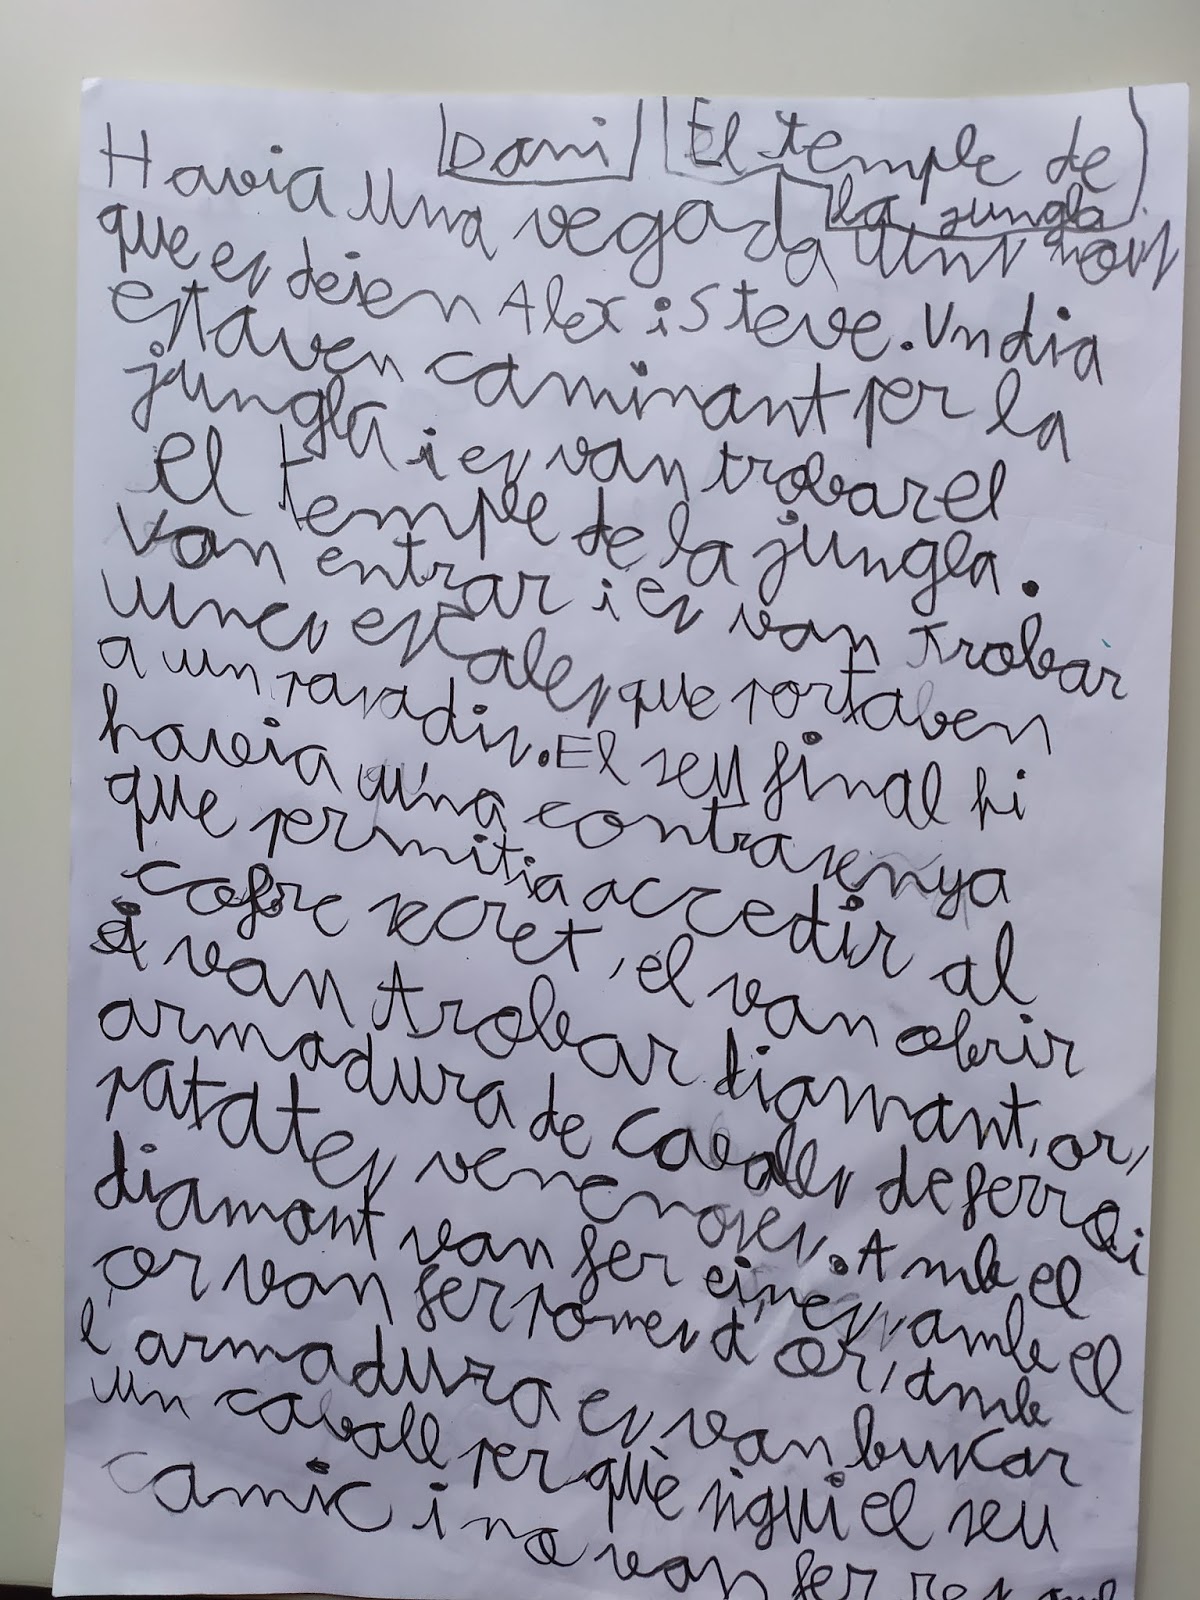 Dani
El temple de
la jungla
Havia una vegada uns nois
que es deien Alex i Steve. Un dia
estaven caminant per la
jungla i es van trobar el
el temple de la jungla.
Van entrar i es van trobar
unes escales que portaben
a un paradis. El seu final hi
havia una contrasenya
que permitia accedir al
cofre secret, el van obrir
i van trobar diamant, or,
armadura de cavalls de ferro i
patates venenoses. Amb el
diamant van fer eines, amb el
or van fer pomes d'or, amb
l'armadura es van buscar
un cavall per què sigui el seu
amic i no van fer res amb